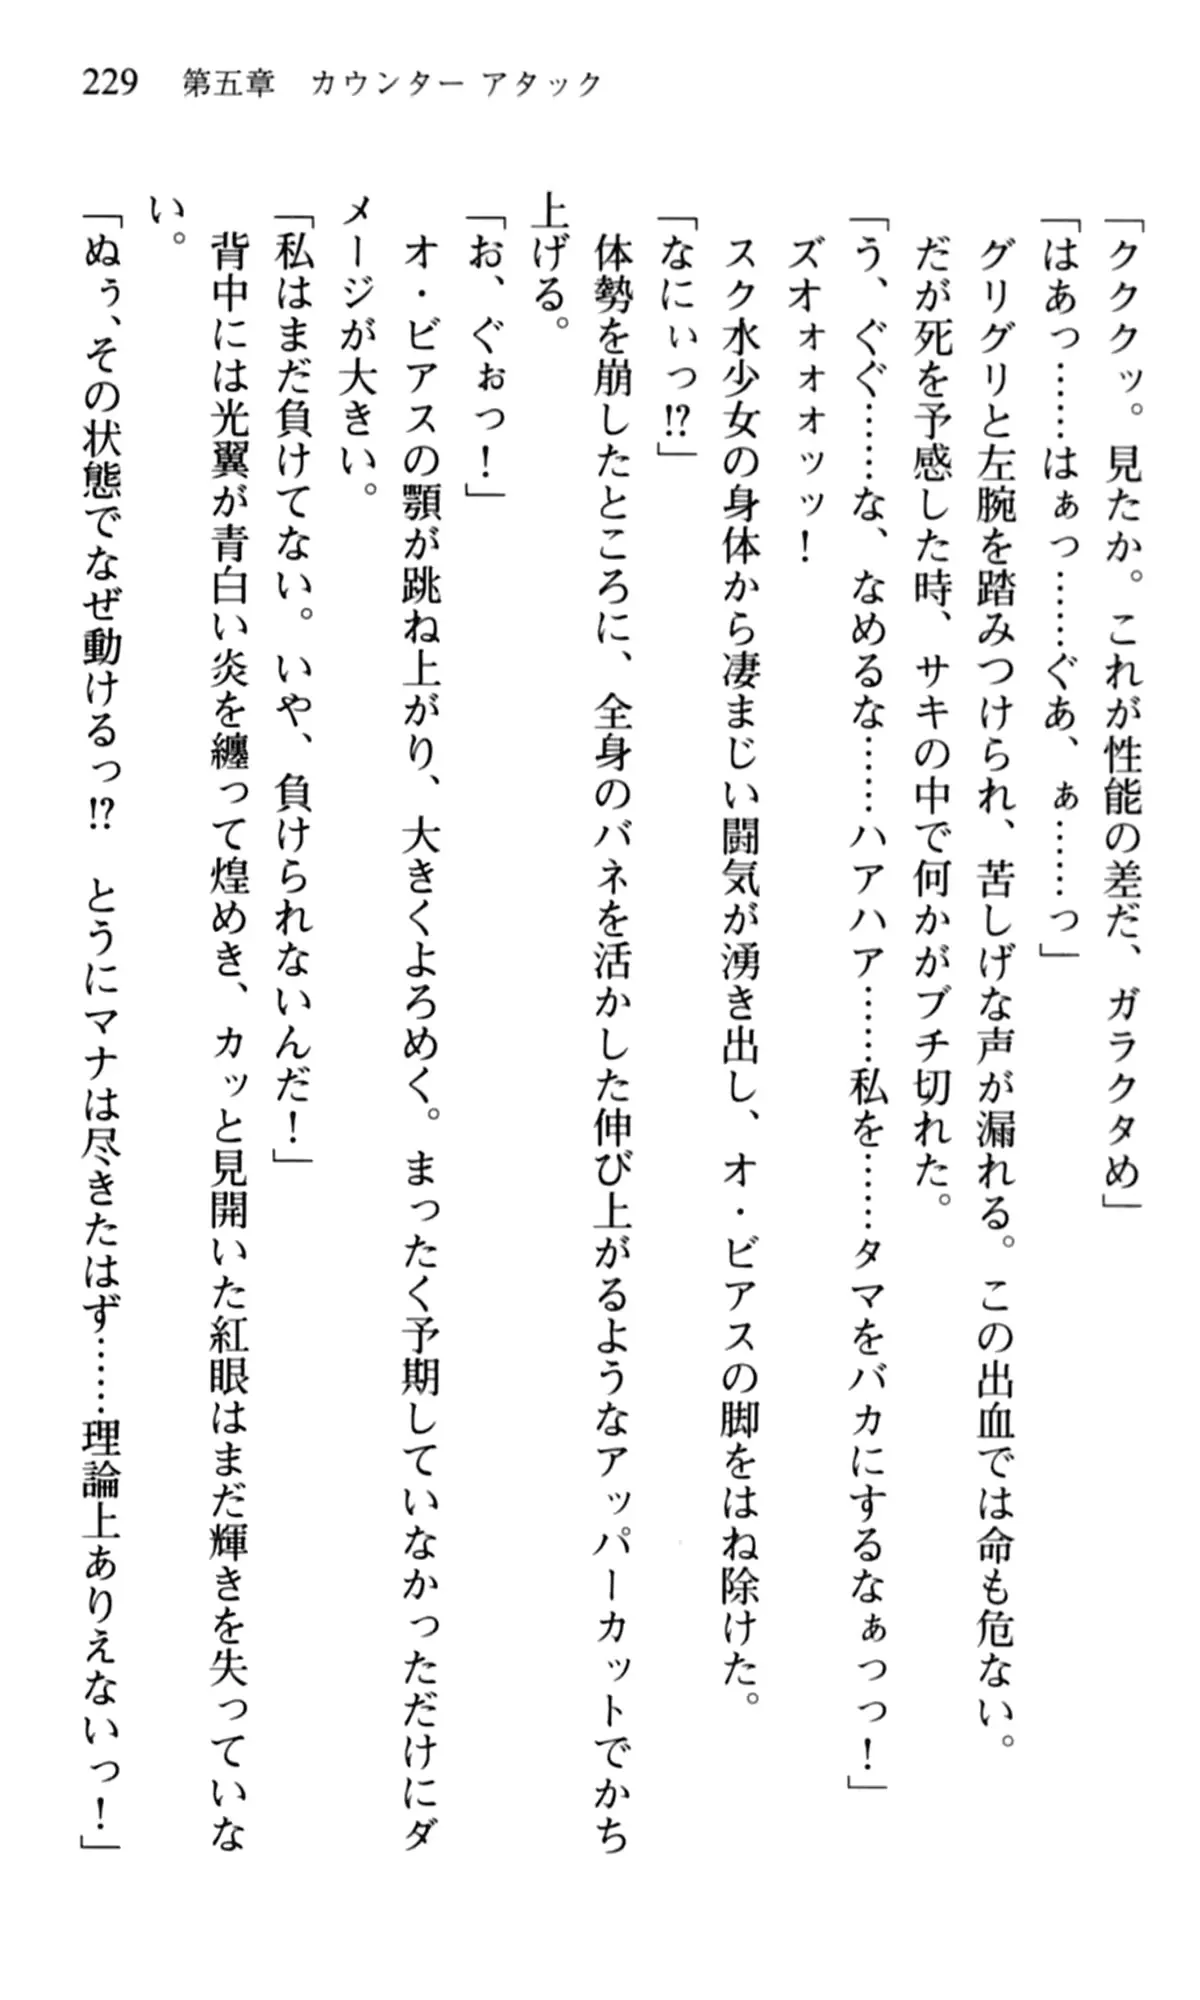 229　第五章　カウンター アタック
「ククッ。見たか。これが性能の差だ、ガラクタめ」
「はあっ……はぁっ……ぐあ、ぁ……っ」
　グリグリと左腕を踏みつけられ、苦しげな声が漏れる。この出血では命も危ない。
　だが死を予感した時、サキの中で何かがブチ切れた。
「う、ぐぐ……な、なめるな……ハアハア……私を……タマをバカにするなぁっっ！」
　ズオォォォッッ！
　スク水少女の身体から凄まじい闘気が湧き出し、オ・ビアスの脚をはね除けた。
「なにぃっ!?」
　体勢を崩したところに、全身のバネを活かした伸び上がるようなアッパーカットでかち
上げる。
「お、ぐぉっ！」
　オ・ビアスの顎が跳ね上がり、大きくよろめく。まったく予期していなかっただけにダ
メージが大きい。
「私はまだ負けてない。いや、負けられないんだ！」
　背中には光翼が青白い炎を纏って煌めき、カッと見開いた紅眼はまだ輝きを失っていな
い。
「ぬぅ、その状態でなぜ動けるっ!?　とうにマナは尽きたはず……理論上ありえないっ！」